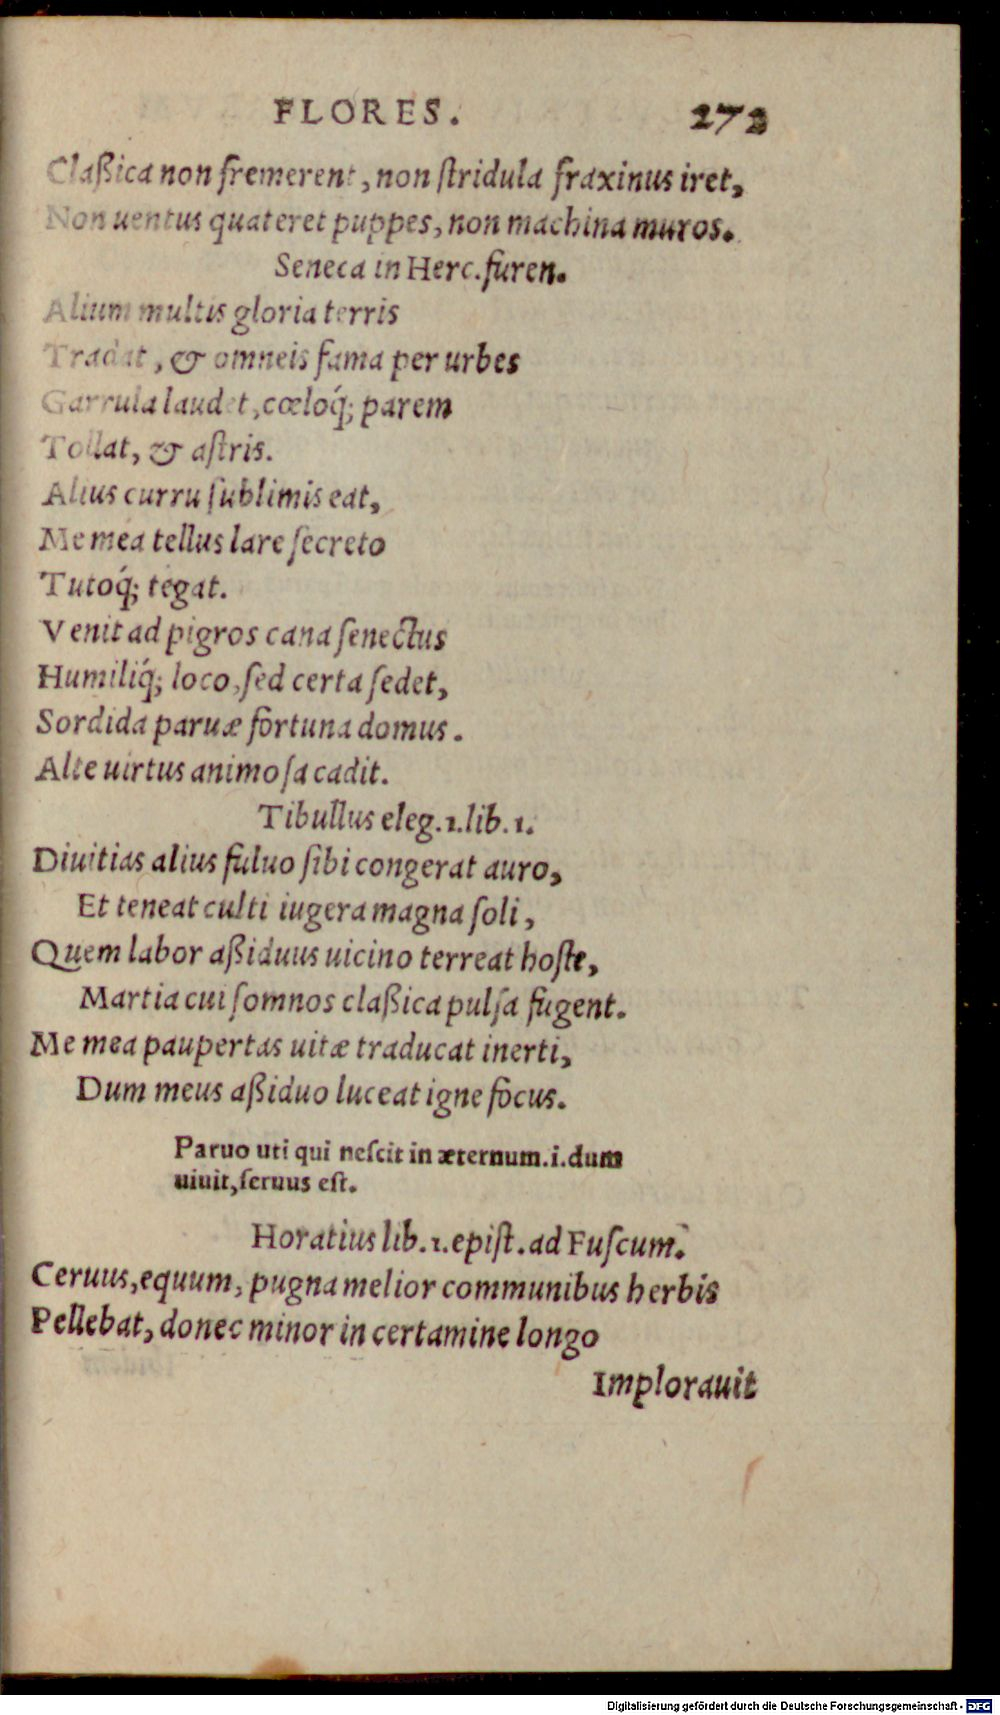 FLORES. 272
Claßica non fremerent, non ſtridula fraxinus iret,
Non uentus quateret puppes, non machina muros.
Seneca in Herc. furen.
Alium multis gloria terris
Tradat, & omneis fama per urbes
Garrula laudet, cœloq́; parem
Tollat, & aſtris.
Alius curru ſublimis eat,
Me mea tellus lare ſecreto
Tutoq́; tegat.
Venit ad pigros cana ſenectus
Humiliq́; loco, ſed certa ſedet,
Sordida paruæ fortuna domus.
Alte uirtus animoſa cadit.
Tibullus eleg. 1. lib. 1.
Diuitias alius fuluo ſibi congerat auro,
Et teneat culti iugera magna ſoli,
Quem labor aßiduus uicino terreat hoſte,
Martia cui ſomnos claßica pulſa fugent.
Me mea paupertas uitæ traducat inerti,
Dum meus aßiduo luceat igne focus.
Paruo uti qui neſcit in æternum. i. dum
uiuit, ſeruus eſt.
Horatius lib. 1. epiſt. ad Fuſcum.
Ceruus, equum, pugna melior communibus herbis
Pellebat, donec minor in certamine longo
Implorauit
Digitalisierung gefördert durch die Deutsche Forschungsgemeinschaft - DFG